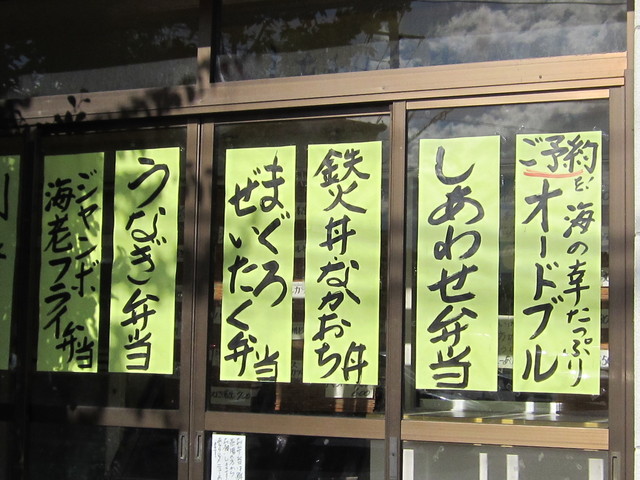 ご予約を!
海の幸たっぷり
オードブル
しあわせ弁当
鉄火丼なかおち丼
まぐろ
ぜいたく弁当
うなぎ弁当
ジャンボ
海老フライ弁当